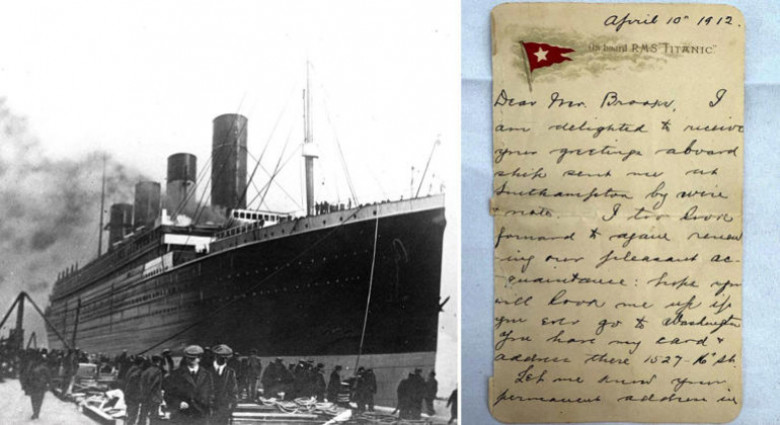 April 10" 1912.
On board R.M.S. "TITANIC"
Dear Mr. Brooks, I
am delighted to receive
your greetings aboard
ship sent me at
Southampton by wire
note. I too look
forward to again renew
ing our pleasant ac-
quaintance: hope you
will look me up if
you ever go to Washington
You have my card &
address there 1527-K St.
Let me know your
permanent address in